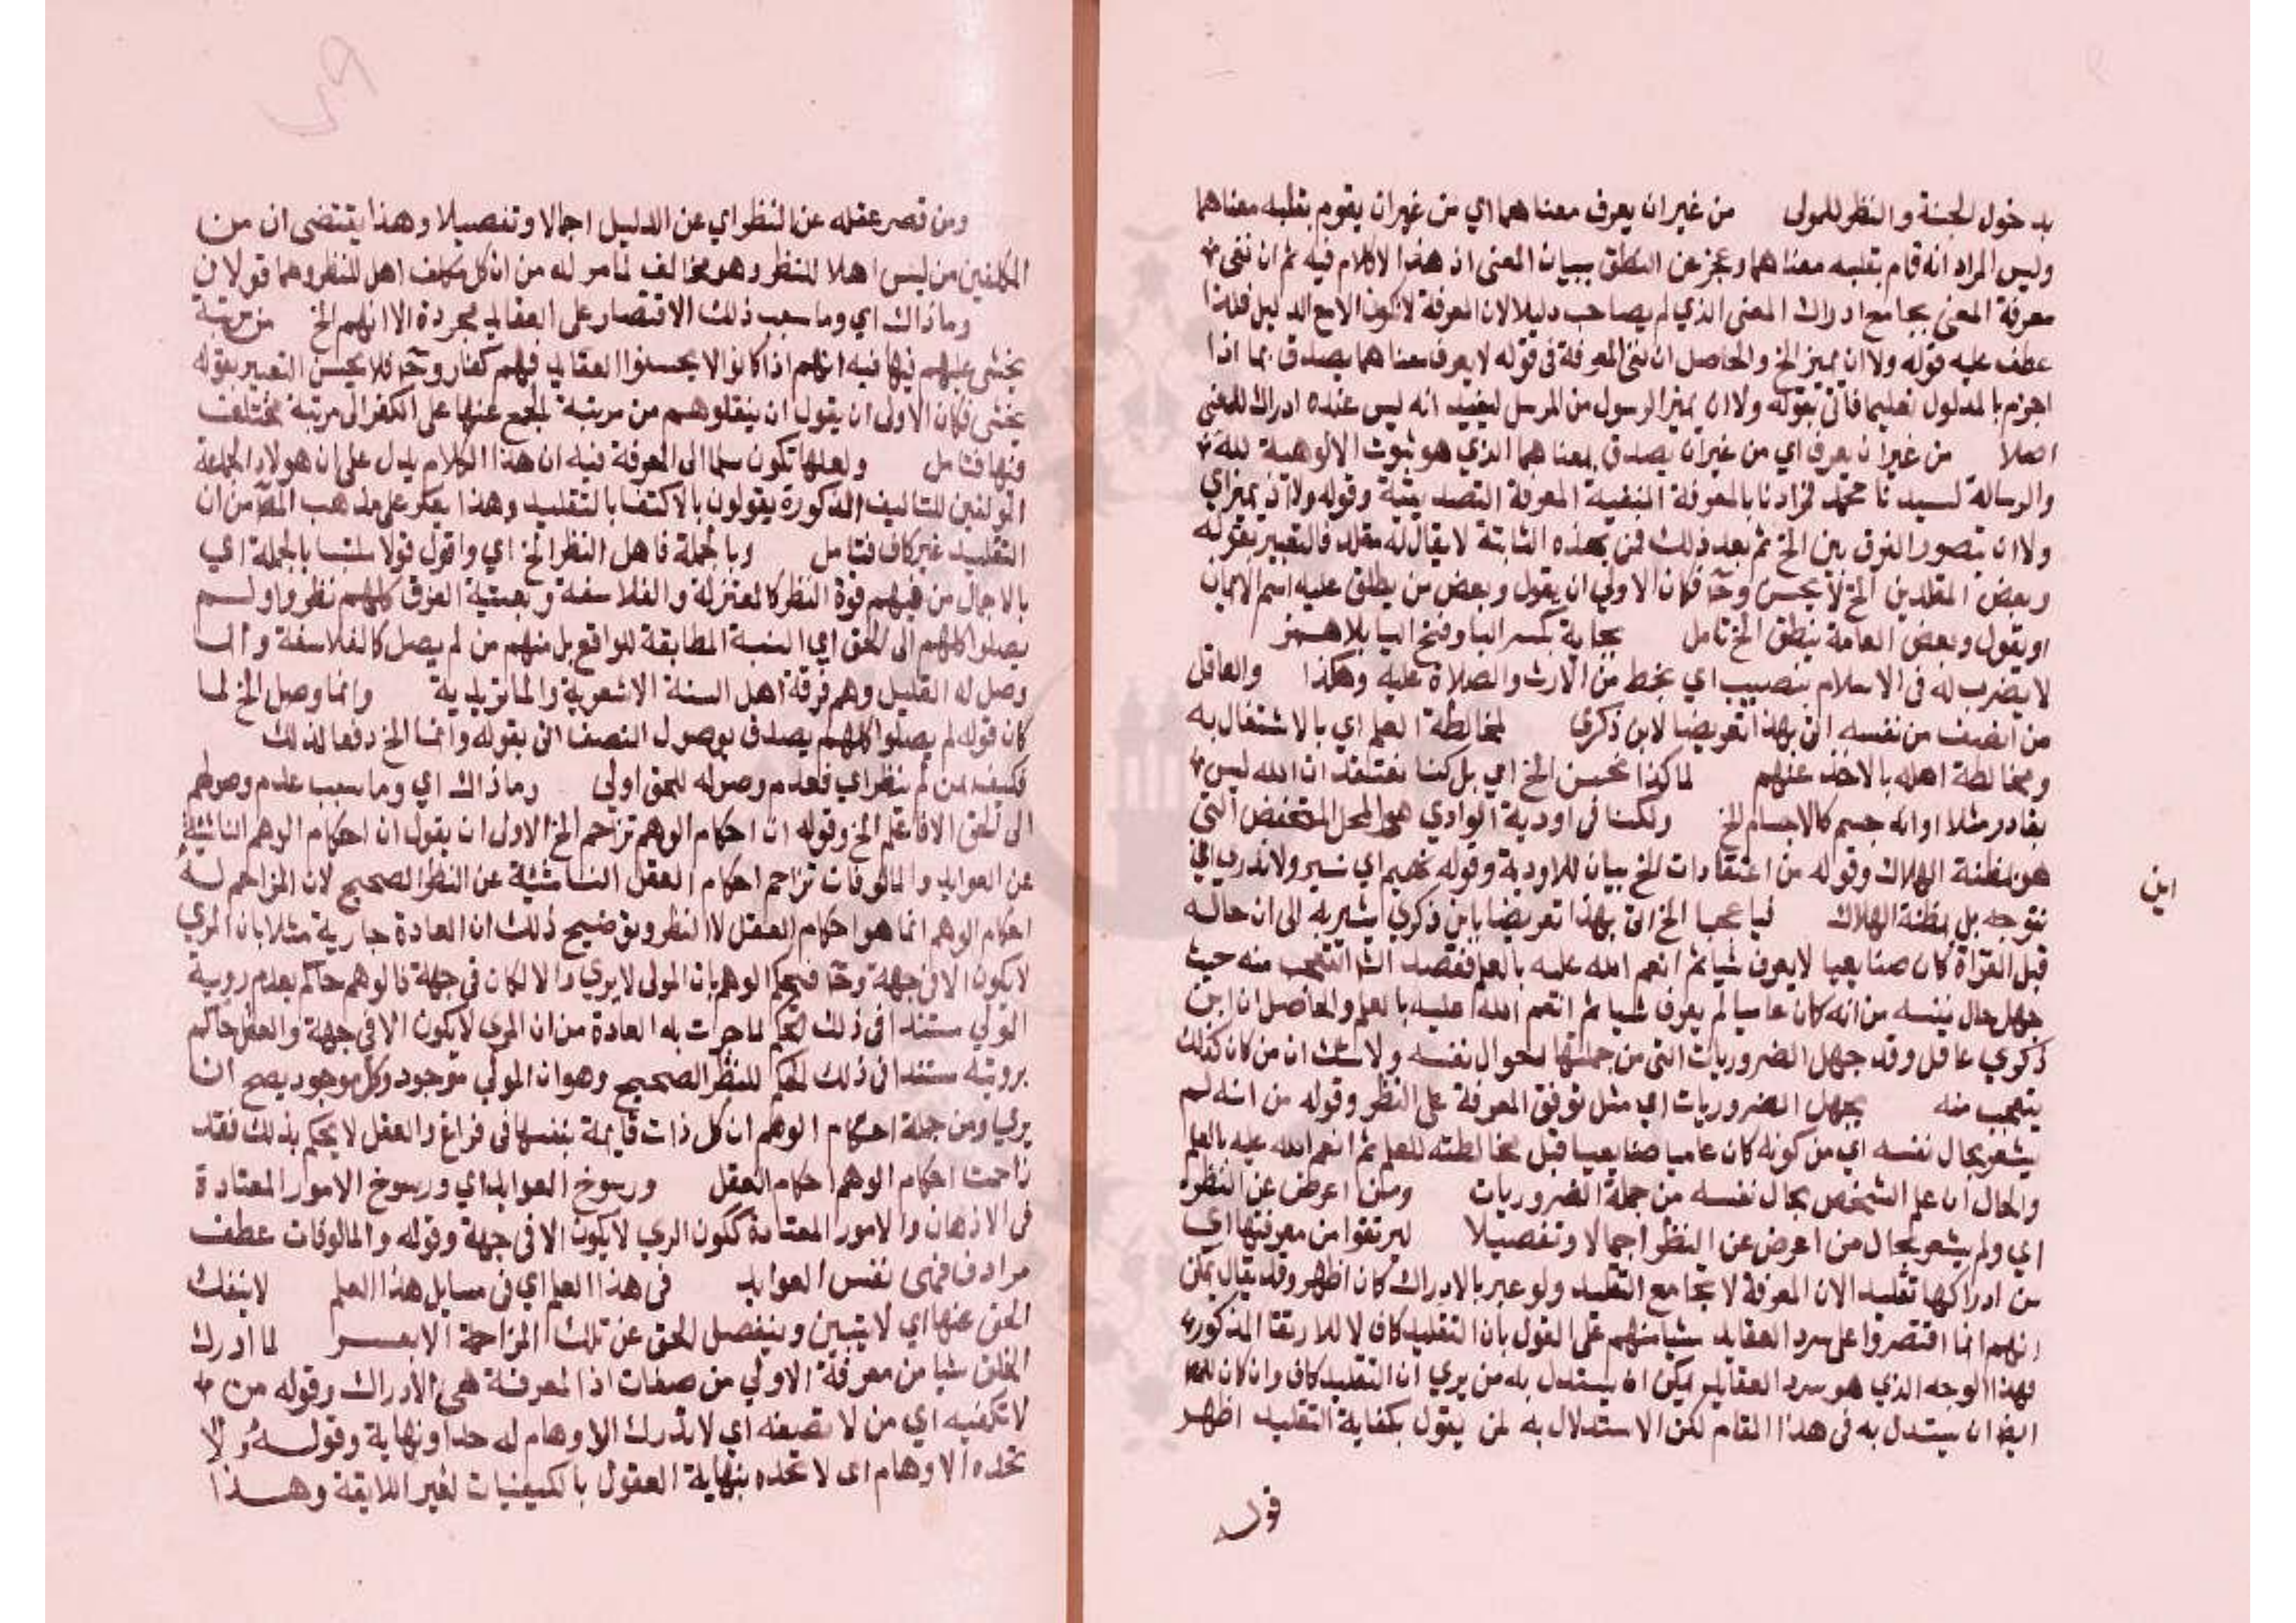 بدخول الجنة والنظر للمولى من غير ان يعرف معناهما اي من غير ان يقوم بقلبه معناهما
وليس المراد انه قام بقلبه معناهما وعجز عن النطق ببيان المعنى ان هذا لا كلام فيه ثم ان نفى
معرفة المعنى يجامع ادراك المعنى الذي لم يصاحب دليلا لان المعرفة لا تكون الا مع الدليل فلذا
عطف عليه قوله ولا ان يميز الخ والحاصل ان نفى المعرفة فى قوله لا يعرف معناهما يصدق بما اذا
اجزم بالمدلول تعليما فاتى بقوله ولا ان يميز الرسول من المرسل ليفيد انه ليس عنده ادراك للمعنى
اصلا من غير ان يعرف اي من غير ان يصدق بمعناهما الذي هو ثبوت الالوهية لله
والرسالة لسيدنا محمد فمرادنا بالمعرفة المنفية المعرفة التصديقية وقوله ولا ان يميز اي
ولا ان يتصور الفرق بين الخ ثم بعد ذلك فمن بهذه الثابتة لا يقال له مقلد فالتعبير بقوله
وبعض المقلدين الخ لا يحسن وح فكان الاولى ان يقول وبعض من يطلق عليه اسم الايمان
او يقول وبعض العامة ينطق الخ تامل بجاية بكسر البا وفتح اليا بلا همز
لا يضرب له فى الاسلام بنصيب اي بحظ من الارث والصلاة عليه وهكذا والعاقل
من انصف من نفسه اتى بهذا تعريضا لابن ذكرى لمخالطة العلم اي بالاشتغال به
ومخالطة اهله بالاخذ عنهم لما كنا نحسن الخ اي بل كنا نعتقد ان الله ليس
بقادر مثلا او انه جسم كالاجسام الخ ولكنا فى اودية الوادي هو المحل المنخفض التى
هو مظنة الهلاك وقوله من اعتقادات الخ بيان للاودية وقوله نهيم اي نسير ولا ندري اي
اين
نتوجه بل بمظنة الهلاك فيا عجبا الخ اتى بهذا تعريضا بابن ذكري يشير به الى ان حاله
قبل القراة كان صنايعيا لا يعرف شيا ثم انعم الله عليه بالعلم فقصد الش التعجب منه حيث
جهل حال نفسه من انه كان عاميا لم يعرف شيا ثم انعم الله عليه بالعلم والحاصل ان ابن
ذكري عاقل وقد جهل الضروريات التى من جملتها احوال نفسه ولا شك ان من كان كذلك
يتعجب منه يجهل الضروريات اي مثل توقف المعرفة على النظر وقوله من انه لم
يشعر بحال نفسه اي من كونه كان عاميا صنايعيا قبل مخالطته للعلم ثم انعم الله عليه بالعلم
والحال ان علم الشخص بحال نفسه من جملة الضروريات ومن اعرض عن النظر
اي ولم يشعر بحال من اعرض عن النظر اجمالا وتفصيلا ليرتقوا من معرفتها اي
من ادراكها تقليد الان المعرفة لا تجامع التقليد ولو عبر بالادراك كان اظهر وقد يقال يمكن
انهم انما اقتصروا على سرد العقايد مشيا منهم على القول بان التقليد كاف لا للارتقا المذكور
فهذا الوجه الذي هو سرد العقايد يمكن ان يستدل به من يري ان التقليد كاف وان كان
ايضا ان يستدل به فى هذا المقام لكن الاستدلال به لمن يقول بكفاية التقليد اظهر
قوله
ومن قصر عقله عن النظر اي عن الدليل اجمالا وتفصيلا وهذا يقتضى ان من
المكلفين من ليس اهلا للنظر وهو مخالف لما مر له من ان كل مكلف اهل للنظر وهما قولان
وما ذاك اي وما سبب ذلك الاقتصار على العقايد مجردة الا انهم الخ من مرتبة
يخشى عليهم فيها فيه انهم اذا كانوا لا يحسنوا العقايد فهم كفار وح فلا يحسن التعبير بقوله
يخشى فكان الاولى ان يقول ان ينقلوهم من مرتبة لمجمع عنها على الكفر الى مرتبة مختلف
فيها فتامل ولعلها تكون سلما الى المعرفة فيه ان هذا الكلام يدل على ان هولاء الجماعة
المولفين للتاليف المذكورة يقولون بالاكتفا بالتقليد وهذا يعكر على مذهب المص من ان
التقليد غير كاف فتامل وبالجملة فاهل النظر الخ اي واقول قولا ملتبسا بالجملة اي
بالاجمال من فيهم قوة النظر كالمعتزلة والفلاسفة وبقية الفرق كلهم نظروا ولم
يصلوا كلهم الى الحق اي النسبة المطابقة للواقع بل منهم من لم يصل كالفلاسفة وانما
وصل له القليل وهم فرقة اهل السنة الاشعرية والماتريدية وانما وصل الخ لما
كان قوله لم يصلوا كلهم يصدق بوصول النصف اتى بقوله وانما الخ دفعا لذلك
فكيف بمن لم ينظر اي فعدم وصوله للحق اولى وما ذاك اي وما سبب عدم وصولهم
الى الحق الا فاعلم الخ وقوله ان احكام الوهم تزاحم الخ الاولى ان يقول ان احكام الوهم الناشئة
عن العوايد والمالوفات تزاحم احكام العقل الناشئة عن النظر الصحيح لان المزاحم له
احكام الوهم انما هو احكام العقل لا النظر وتوضيح ذلك ان العادة جارية مثلا بان المري
لا يكون الا فى جهة وح فيحكم الوهم بان المولى لا يري والا لكان فى جهة فالوهم حاكم بعدم روية
المولي مستندا فى ذلك الحكم لما جرت به العادة من ان المري لا يكون الا فى جهة والعقل حاكم
برويته مستندا فى ذلك الحكم للنظر الصحيح وهو ان المولي موجود وكل موجود يصح ان
يري ومن جملة احكام الوهم ان كل ذات قايمة بنفسها فى فراغ والعقل لا يحكم بذلك فقد
زاحمت احكام الوهم احكام العقل ورسوخ العوايد اي ورسوخ الامور المعتادة
فى الاذهان والامور المعتادة ككون المري لا يكون الا فى جهة وقوله والمالوفات عطف
مرادف فهى نفس العوايد فى هذا العلم اي فى مسايل هذا العلم لا ينفك
الحق عنها اي لا يتبين وينفصل الحق عن تلك المزاحمة الا بعسر لما ادرك
الخلق شيا من معرفة الاولي من صفات اذ المعرفة هى الادراك وقوله من
لا تكفيه اي من لا تصفه اي لا تدرك الاوهام له حدا ونهاية وقوله ولا
تحده الاوهام اى لا تحده بنهاية العقول بالكيفيات الغير اللايقة وهذا